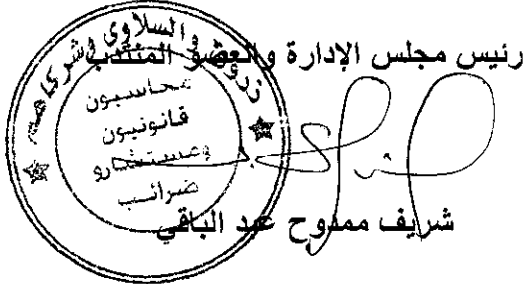 رئيس مجلس الإدارة والعضو المنتدب
زروق والسلاوي وشركاهم
محاسبون
قانونيون
ومستشارو
ضرائب
شريف ممدوح عبد الباقي